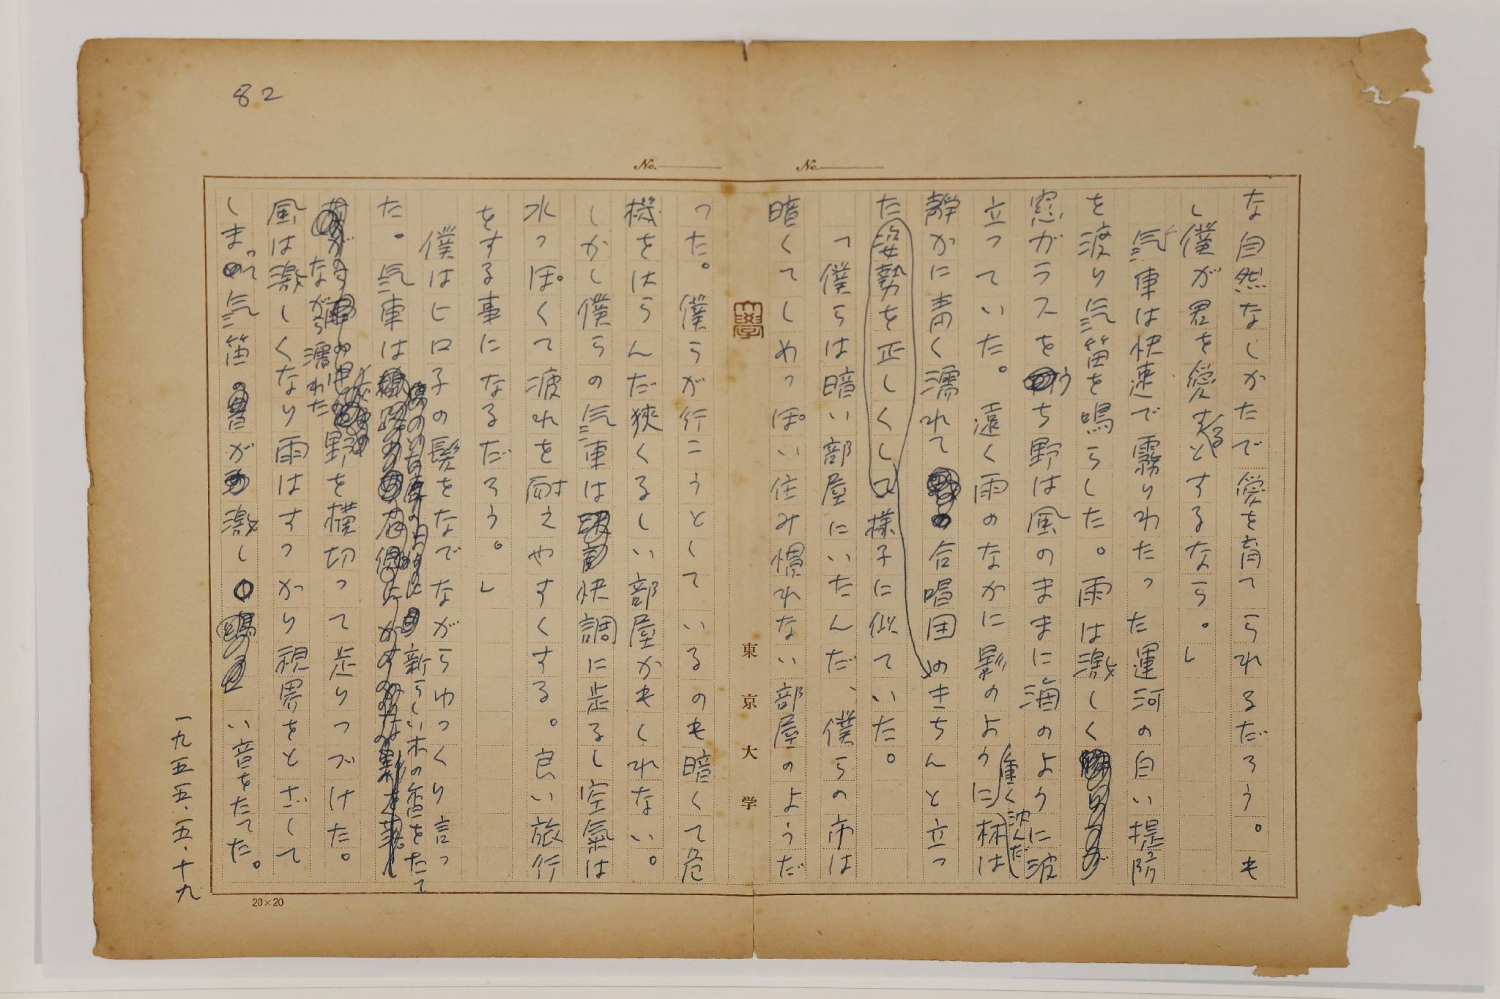 82
No.
No.
な自然なしかたで愛を育てられるだろう。も
し僕が君を愛そうとするなら。」
汽車は快速で霧りわたった運河の白い堤防
を渡り汽笛を鳴らした。雨は激しく
窓ガラスをうち野は風のままに海のように波
立っていた。遠く雨のなかに影のように重く沈んだ林は
静かに青く濡れて合唱団のきちんと立っ
た姿勢を正しくした様子に似ていた。
「僕らは暗い部屋にいたんだ、僕らの市は
暗くてしめっぽい住み慣れない部屋のようだ
った。僕らが行こうとしているのも暗くて危
機をはらんだ狭くるしい部屋かもしれない。
しかし僕らの汽車は快調に走るし空氣は
水っぽくて疲れを耐えやすくする。良い旅行
をする事になるだろう。」
僕はヒロ子の髪をなでながらゆっくり言っ
た。汽車は新らしい木の香をたて
ながら濡れた野を横切って走りつづけた。
風は激しくなり雨はすっかり視界をとざして
しまって汽笛が激しい音をたてた。
一九五五・五・十九
東京大学
20×20